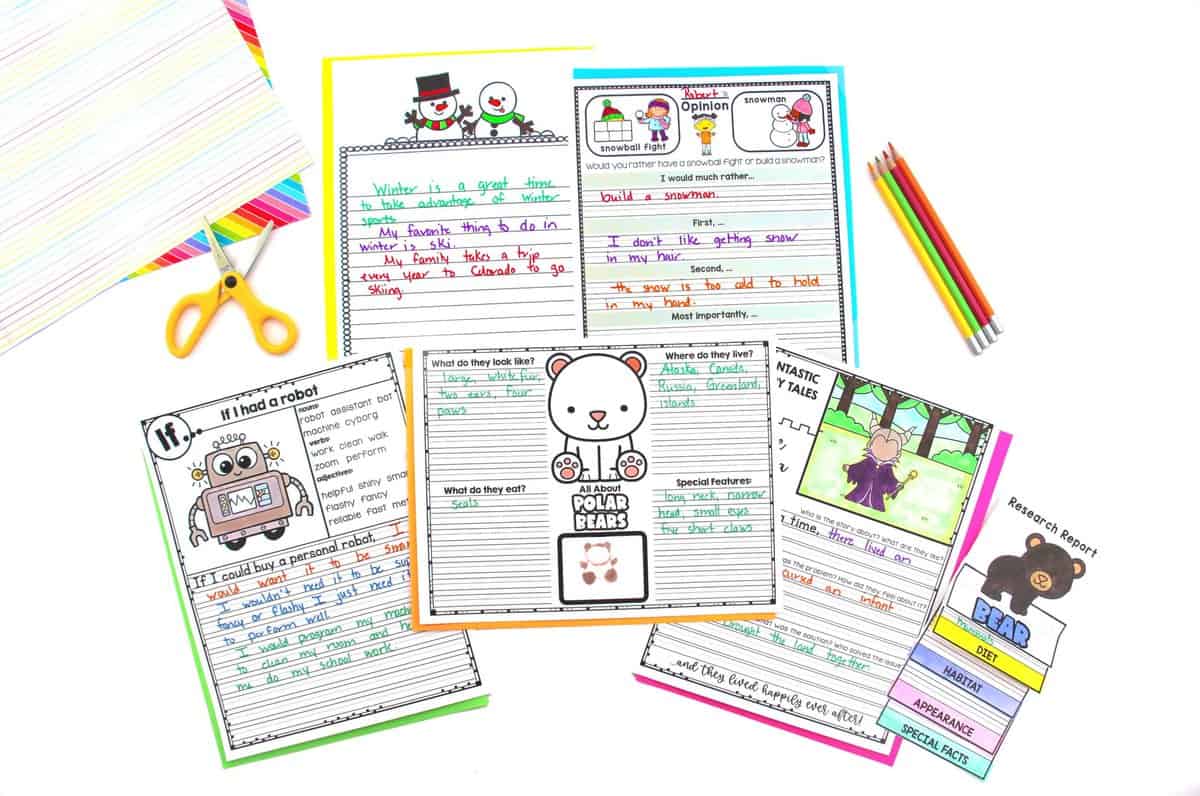 Winter is a great time
to take advantage of winter
sports
My favorite thing to do in
winter is ski.
My family takes a trip
every year to Colorado to go
skiing.
Robert
Opinion
snowball fight
snowman
Would you rather have a snowball fight or build a snowman?
I would much rather...
build a snowman.
First, ...
I don't like getting snow
in my hair.
Second, ...
the snow is too cold to hold
in my hand.
Most importantly, ...
If...
If I had a robot
nouns:
robot assistant bot
machine cyborg
verbs:
work clean walk
zoom perform
adjectives:
helpful shiny smar
flashy fancy
reliable fast met
If I could buy a personal robot, I
would want it to be smar
I wouldn't need it to be sup
fancy or flashy I just need it
to perform well.
I would program my machi
to clean my room and he
me do my school work.
What do they look like?
large, white fur,
two ears, four
paws
What do they eat?
seals
All About
POLAR
BEARS
Where do they live?
Alaska, Canada,
Russia, Greenland,
islands
Special Features:
long neck, narrow
head, small eyes
five short claws
NTASTIC
Y TALES
Who is the story about? What are they like?
time, there lived an
as the problem? How did they feel about it?
cursed an infant
hat was the solution? Who solved the issue
brought the land together
...and they lived happily ever after!
Research Report
BEAR
mammals
DIET
HABITAT
APPEARANCE
SPECIAL FACTS